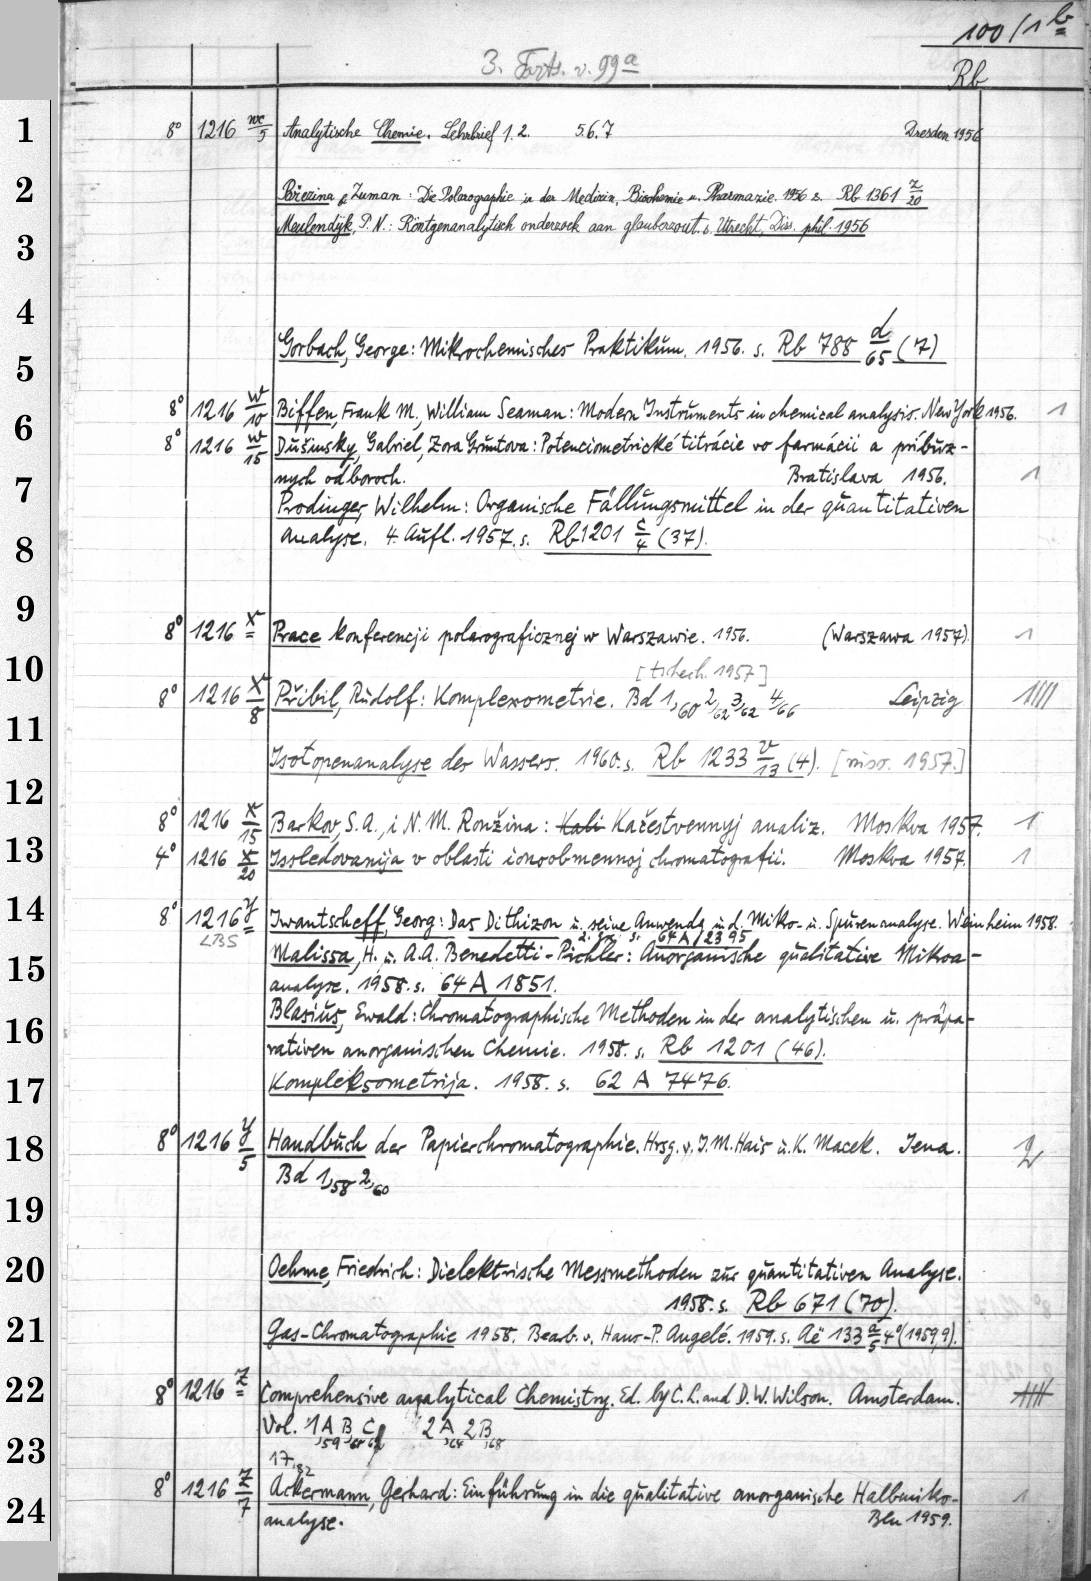 100/1 b
3. Forts. v. 99 a
Rb
1
8° 1216 wc/5 Analytische Chemie. Lehrbrief 1. 2. 5.6.7 Dresden 1956
2
Březina, Zuman: Die Polarographie in der Medizin, Biochemie u. Pharmazie. 1956 s. Rb 1361 z/20
3
Meulendijk, P. N.: Röntgenanalytisch onderzoek aan glauberzout. s. Utrecht, Diss. phil. 1956
4
Gorbach, George: Mikrochemisches Praktikum. 1956. s. Rb 788 d/65 (7)
5
8° 1216 w/10 Biffen, Frank M., William Seaman: Modern Instruments in chemical analysis. New York 1956. 1
6
8° 1216 w/15 Dušinsky, Gabriel, Zora Gruntova: Potenciometrické titrácie vo farmácii a príbuz-
7
nych odboroch. Bratislava 1956. 1
Prodinger, Wilhelm: Organische Fällungsmittel in der quantitativen
8
Analyse. 4. Aufl. 1957. s. Rb 1201 c/4 (37).
9
8° 1216 x Prace konferencji polarograficznej w Warszawie. 1956. (Warszawa 1957). 1
10
[tschech. 1957]
8° 1216 x/8 Přibil, Rudolf: Komplexometrie. Bd 1,60 2,62 3,62 4,66 Leipzig 1111
11
Isotopenanalyse des Wassers. 1960. s. Rb 1233 v/13 (4). [russ. 1957.]
12
8° 1216 x/15 Barkov, S. A., i N. M. Ronžina: Kali Kačestvennyj analiz. Moskva 1957. 1
13
4° 1216 x/20 Issledovanija v oblasti ionoobmennoj chromatografii. Moskva 1957. 1
14
8° 1216 y Iwantscheff, Georg: Das Dithizon u. seine Anwendg in d. Mikro- u. Spurenanalyse. Weinheim 1958.
LBS s. 64 A / 2395
15
Malissa, H. u. A. A. Benedetti-Pichler: Anorganische qualitative Mikroa-
analyse. 1958. s. 64 A 1851.
16
Blasius, Ewald: Chromatographische Methoden in der analytischen u. präpa-
rativen anorganischen Chemie. 1958. s. Rb 1201 (46).
17
Kompleksometrija. 1958. s. 62 A 7476.
18
8° 1216 y/5 Handbuch der Papierchromatographie. Hrsg. v. I. M. Hais u. K. Macek. Jena. 2
Bd 1,58 2,60
19
20
Oehme, Friedrich: Dielektrische Messmethoden zur quantitativen Analyse.
1958. s. Rb 671 (70).
21
Gas-Chromatographie 1958. Bearb. v. Hans-P. Angelé. 1959. s. Aë 133 a/5 4° (1959,9).
22
8° 1216 z Comprehensive analytical Chemistry. Ed. by C. L. and D. W. Wilson. Amsterdam.
Vol. 1A,59 B,60 C,62 2A,64 2B,68
23
17,82
8° 1216 z/7 Ackermann, Gerhard: Einführung in die qualitative anorganische Halbmikro- 1
24
analyse. Bln 1959.